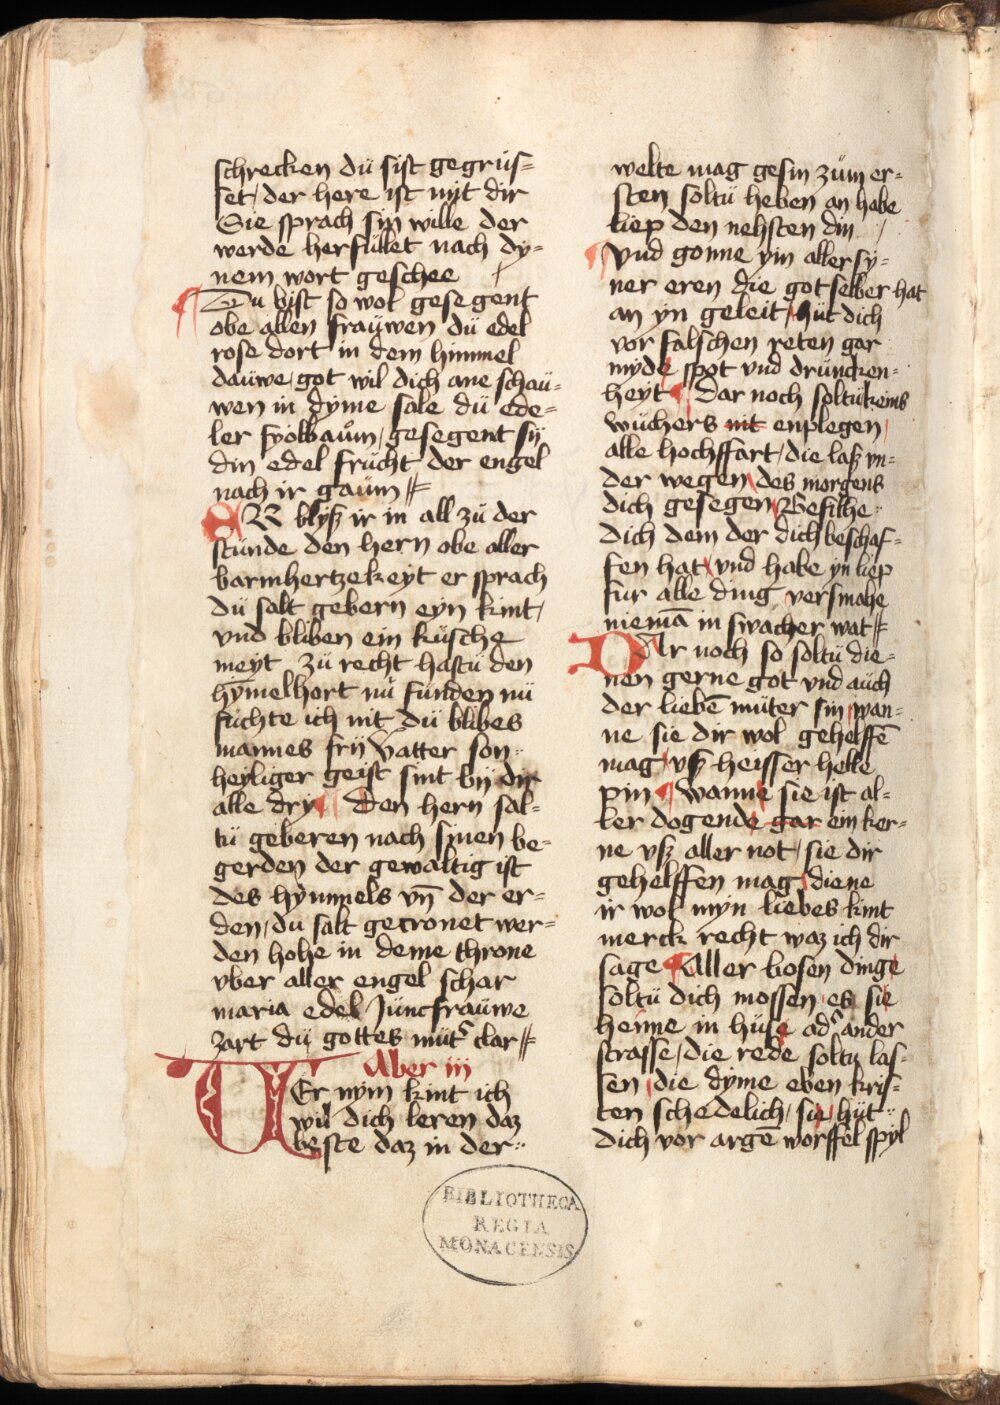 schrecken dü sist gegrüs=
set / der here ist mit dir
Sie sprach sin wille der
werde herfüllet nach dy=
nem wort geschee
Du bist so wol gesegent
obe allen fraüwen dü edel
rose dort in dem himmel
daüwe / got wil dich ane schaü=
wen in dyme sale dü ede=
ler fyolbaům / gesegent sÿ
din edel frücht der engel
nach ir gaüm //
ER blyß ir in all zü der
stünde den hern obe aller
barmhertzekeyt er sprach
dü salt gebern eyn kint /
vnd bliben ein küsche
meyt zü recht hastü den
hymelhort nü fünden nü
füchte ich nit dü blibes
mannes frÿ Vatter son
heyliger geist sint bÿ dir
alle dry ¶ Den hern sal=
tü geberen nach sinen be=
gerden der gewaltig ist
des hymmels vn̄ der er=
den / du salt gecronet wer=
den hohe in deme throne
vber aller engel schar
maria edel Jüncfraüwe
zart dü gottes müt͛ clar //
Aber iij
VEr nÿm kint ich
wil dich leren daz
beste daz in der
welte mag gesin züm er=
sten soltü heben an habe
liep den nehsten din
Vnd gonne ÿm aller sy=
ner eren die got selber hat
an yn geleit / hüt dich
vor falschen reten gar
myde spot vnd drüncken=
heyt ¶ Dar noch soltü keins
wüchers nit enplegen
alle hochffart / die laß vn=
der wegen des morgens
dich gesegen Befilhe
dich dem der dich beschaf=
fen hat vnd habe yn liep
für alle ding versmahe
niemā in swacher wat //
DAr noch so soltü die=
nen gerne got vnd aüch
der liebē müter sin wan=
ne sie dir wol gehelffē
mag vß heisser helle
pin ¶ wanne sie ist al=
ler dogende gar ein ker=
ne vß aller not / sie dir
gehelffen mag diene
ir wol myn liebes kint
merck recht waz ich dir
sage ¶ Aller bosen dinge
soltü dich mossen es sie
heime in hüse ad͛ ander
strasse / die rede soltu las=
sen die dyme eben kris=
ten schedelich / sie hüt
dich vor argē worffel spyl
BIBLIOTHECA
REGIA
MONACENSIS